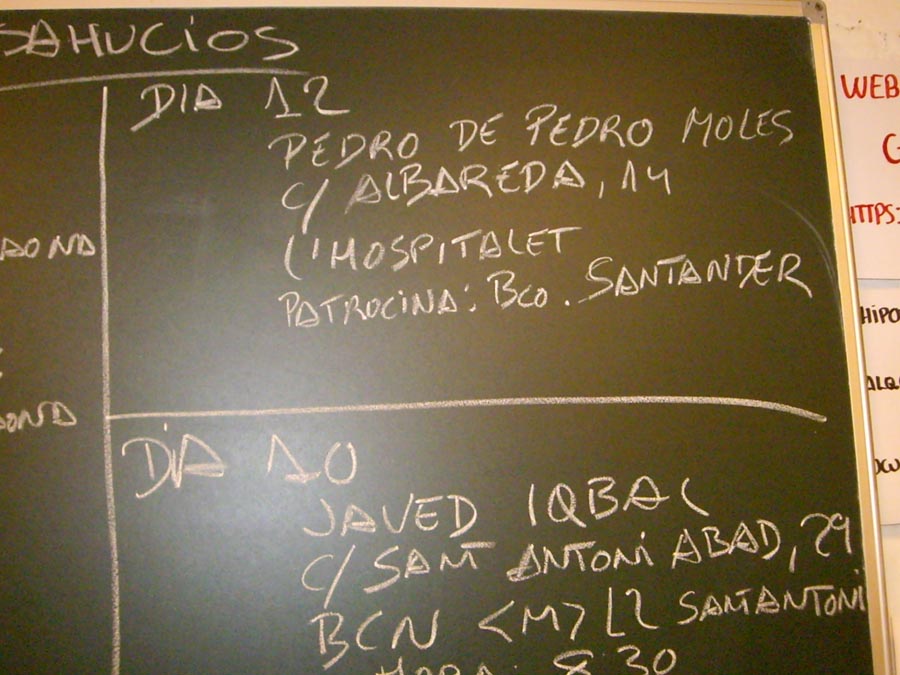 SAHUCIOS
DIA 12
PEDRO DE PEDRO MOLES
C/ ALBAREDA, 14
L'HOSPITALET
PATROCINA: BCO. SANTANDER
DIA 10
JAVED IQBAL
C/ SANT ANTONI ABAD, 29
BCN <M> L2 SANT ANTONI
HORA: 8:30
AONA
WEB
G
HTTPS:
HIPO
ALQ